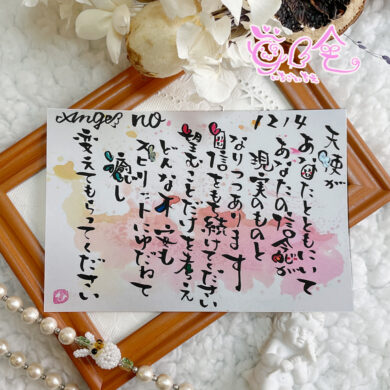 Angel no 1214
天使が
あなたとともにいて
あなたの信念が
現実のものと
なりつつあります
自信をもち続けてください
望むことだけを考え
どんな不安も
スピリットにゆだねて
癒し
変えてもらってください